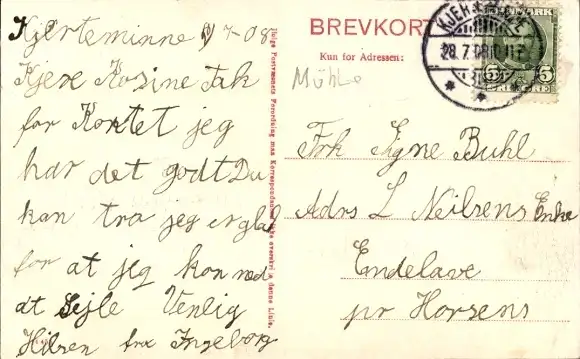 Kjerteminne 7-08
Kjere Kosine Tak
for Kortet jeg
har det godt Du
kan tro jeg er glad
for at jeg kom med
at Sejle Venlig
Hilsen fra Ingeborg
Ifølge Postvæsenets Forordning maa Korrespondancen ikke overskride denne Linie.
BREVKORT
Kun for Adressen:
28.7.08
5 5
Frk Signe Buhl
Adrs L Neilsens Enke
Endelave
pr Horsens